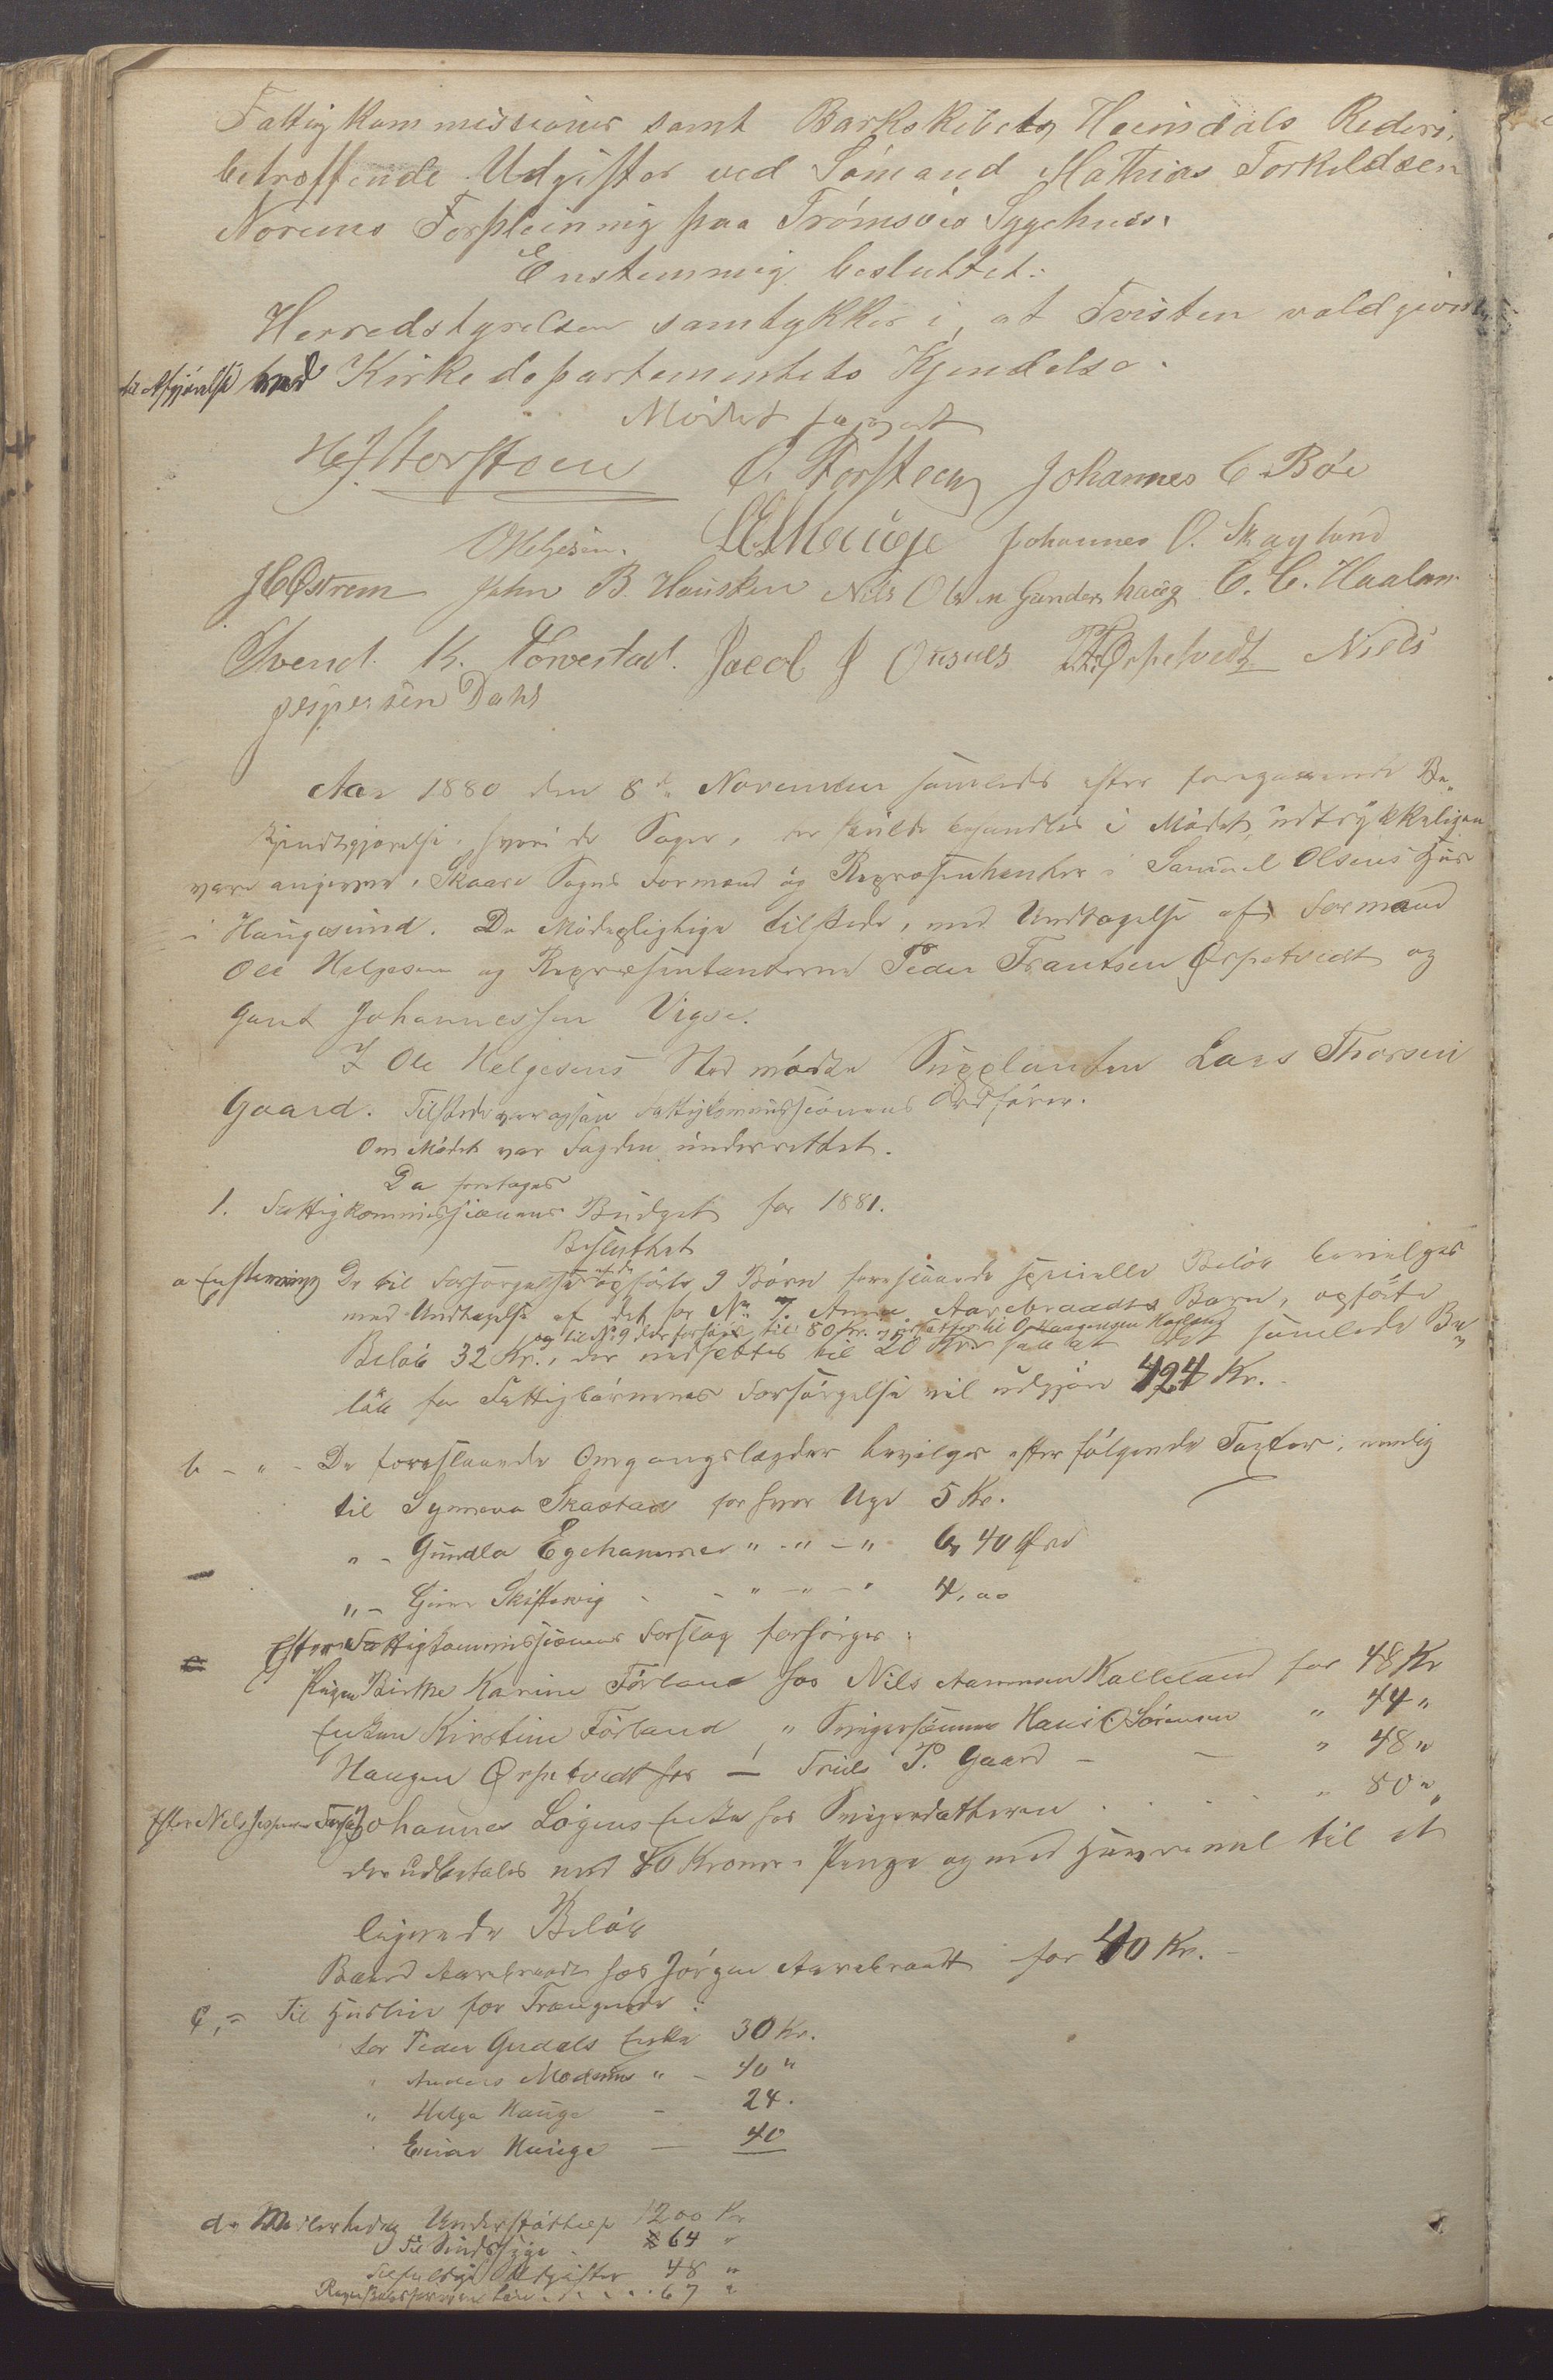 Fattigkommissioner samt Barkskibets Heimdals Rederi,
betræffende Udgifter ved Sømand Mathias Torkildsen
Noreims Forpleining paa Tromsøes Sygehuus.
Enstemmig besluttet:
Herredstyrelsen samtykker i, at Tvisten voldgives
til Afgjørelse ved Kirkedepartementets Kjendelse.
Mødet hævet
Storsteen O. Torsteen Johannes C Bøe
OHelgesen. Johannes O. Skaglund
JCØstrem John B. Hausken Nils Olsen Gundershaug C. C. Haaland
Svend K. Torvestad. Jacob J Ørpetvedt Niels
Jespersen Dahl
Aar 1880 den 8de November samledes efter foregaaende Be-
kjendtgjørelse, hvori de Sager, der skulde behandles i Mødet, udtrykkeligen
vare angivne, Skaare Sogns Formænd og Repræsentanter i Samuel Olsens Huus
i Haugesund. De Mødepligtige tilstede, med Undtagelse af Formand
Ole Helgesen og Repræsentanterne Peder Frantsen Ørpetvedt og
Gunt Johannessen Vigse.
I Ole Helgesens Sted mødte Suppleanten Lars Thorsen
Gaard. Tilstede var ogsaa Fattigkommissionens Ordfører.
Om Mødet var Fogden underrettet.
Da foretoges
1. Fattigkommissionens Budget for 1881.
Besluttet
a Enstemmig De til Forsørgelse af de opførte 9 Børn foreslaaede specielle Beløb bevilges
med Undtagelse af det for No 7. Anna Aarebraadts Barn, opførte
og til No 9 til 80 Kr.
Beløb 32 Kr., der nedsættes til 20 Kr saa at det samlede Be-
løb for Fattigbørnenes Forsørgelse vil udgjøre 424 Kr.
b - " - De foreslaaede Omgangslægder bevilges efter følgende Taxter, nemlig
til Synneva Skaastad for hver Uge 5 Kr.
" - Gundla Egehammer " - " - " 6, 40 Øre
" - Skiftesvig - - " - " - " 4,00
Efter Fattigkommissionens Forslag forsørges:
Pigen Birthe Karine Førland hos Nils Aamnen Kalleland for 48 Kr
Enken Kirstine Førland " Svigersønnen Hans O Sørensen " 44 "
Haugen Ørpetvedt hos - Truls P. Gaard - - " 48 "
Efter Nils Jespersens Forslag Johannes Løgens Enke hos Svigerdatteren . . . " 80 "
der udbetales med 40 Kroner i Penge og med Havremel til et
lignende Beløb
Baard Aarebraadt hos Jørgen Aarebraadt for 40 Kr. -
C, = Til Huusleie for Trængende:
for Peder Gudals Enke 30 Kr.
" Anders " - 40 "
" Helga Hauge - 24.
" Einar Hauge - 40
d " Midlertidig Understøttelse 1200 Kr
Til Sindssyge 64 "
Tilfældige Udgifter 48 "
Regnskabsførerens Løn . . . . 67 "